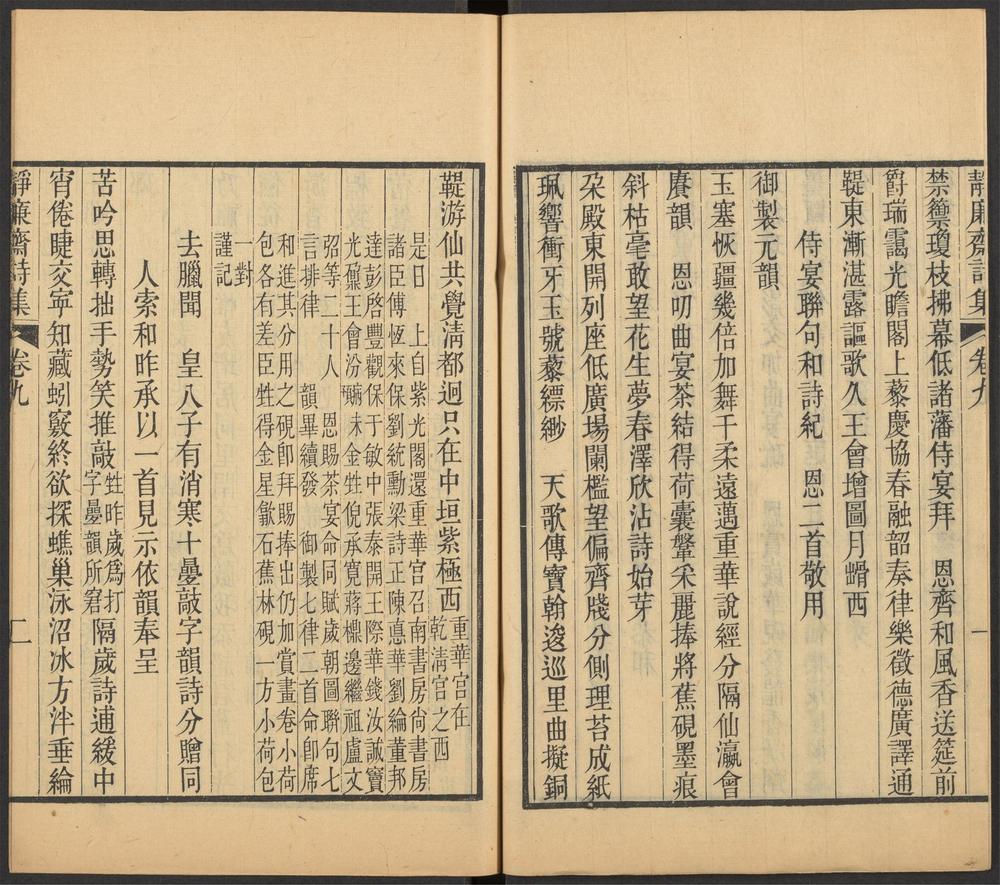 靜廉齋詩集 卷九 一
禁籞瓊枝拂幕低諸藩侍宴拜　恩齊和風香送筵前
爵瑞靄光瞻閣上藜慶協春融韶奏律樂徵德廣譯通
鞮東漸湛露謳歌久王會增圖月㟙西
侍宴聯句和詩紀　恩二首敬用
御製元韻
玉塞恢疆幾倍加舞干柔遠邁重華說經分隔仙瀛會
賡韻　恩叨曲宴茶結得荷囊鞶采麗捧將蕉硯墨痕
斜枯毫敢望花生夢春澤欣沾詩始芽
朶殿東開列座低廣場闌檻望偏齊牋分側理苔成紙
珮響衝牙玉號藜縹緲　天歌傳寶翰逡巡里曲擬銅
鞮游仙共覺淸都迥只在中垣紫極西
重華宮在
乾淸宮之西
是日　上自紫光閣還重華宮召南書房尙書房
諸臣傅恆來保劉統勳梁詩正陳悳華劉綸董邦
達彭啓豐觀保于敏中張泰開王際華錢汝誠竇
光鼐王會汾金甡倪承寬蔣檙邊繼祖盧文
弨等二十人　恩賜茶宴命同賦歲朝圖聯句七
言排律　韻畢續發　御製七律二首命卽席
和進其分用之硯卽拜賜捧出仍加賞畫卷小荷
包各有差臣甡得金星歙石蕉林硯一方小荷包
一對
謹記
去臘聞　皇八子有消寒十疊敲字韻詩分贈同
人索和昨承以一首見示依韻奉呈
苦吟思轉拙手勢笑推敲
甡昨歲爲打
字疊韻所窘
隔歲詩逋緩中
宵倦睫交寕知藏蚓竅終欲探蟭巢泳沼冰方泮垂綸
靜廉齋詩集 卷九 二